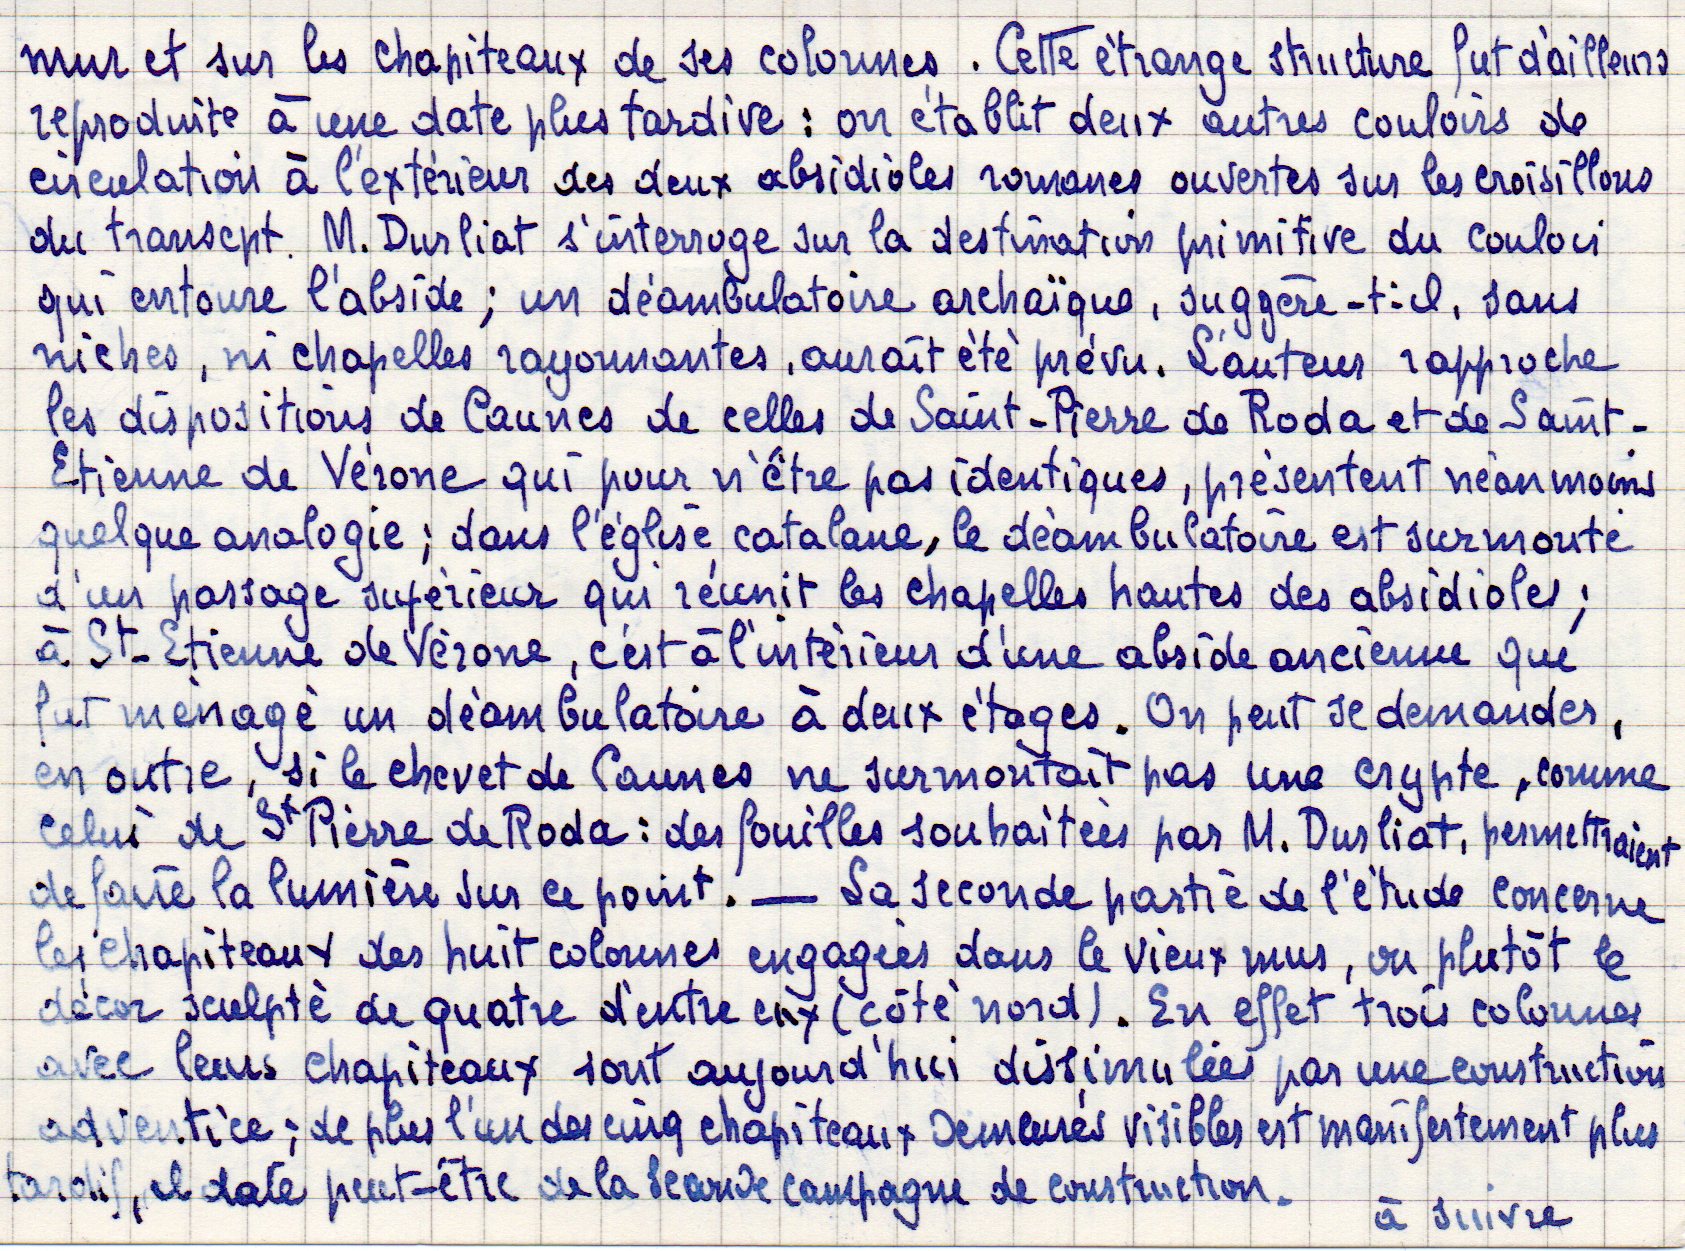 mur et sur les chapiteaux de ses colonnes. Cette étrange structure fut d'ailleurs
reproduite à une date plus tardive : on établit deux autres couloirs de
circulation à l'extérieur des deux absidioles romanes ouvertes sur les croisillons
du transept. M. Durliat s'interroge sur la destination primitive du couloir
qui entoure l'abside ; un déambulatoire archaïque, suggère-t-il, sans
niches, ni chapelles rayonnantes, aurait été prévu. L'auteur rapproche
les dispositions de Caunes de celles de Saint-Pierre de Roda et de Saint-
Etienne de Vérone qui pour n'être pas identiques, présentent néanmoins
quelque analogie ; dans l'église catalane, le déambulatoire est surmonté
d'un passage supérieur qui réunit les chapelles hautes des absidioles ;
à St-Etienne de Vérone, c'est à l'intérieur d'une abside ancienne que
fut ménagé un déambulatoire à deux étages. On peut se demander,
en outre, si le chevet de Caunes ne surmontait pas une crypte, comme
celui de St Pierre de Roda : des fouilles souhaitées par M. Durliat, permettraient
de faire la lumière sur ce point. — La seconde partie de l'étude concerne
les chapiteaux des huit colonnes engagées dans le vieux mur, ou plutôt le
décor sculpté de quatre d'entre eux (côté nord). En effet trois colonnes
avec leurs chapiteaux sont aujourd'hui dissimulées par une construction
adventice ; de plus l'un des cinq chapiteaux demeurés visibles est manifestement plus
tardif, il date peut-être de la seconde campagne de construction.
à suivre